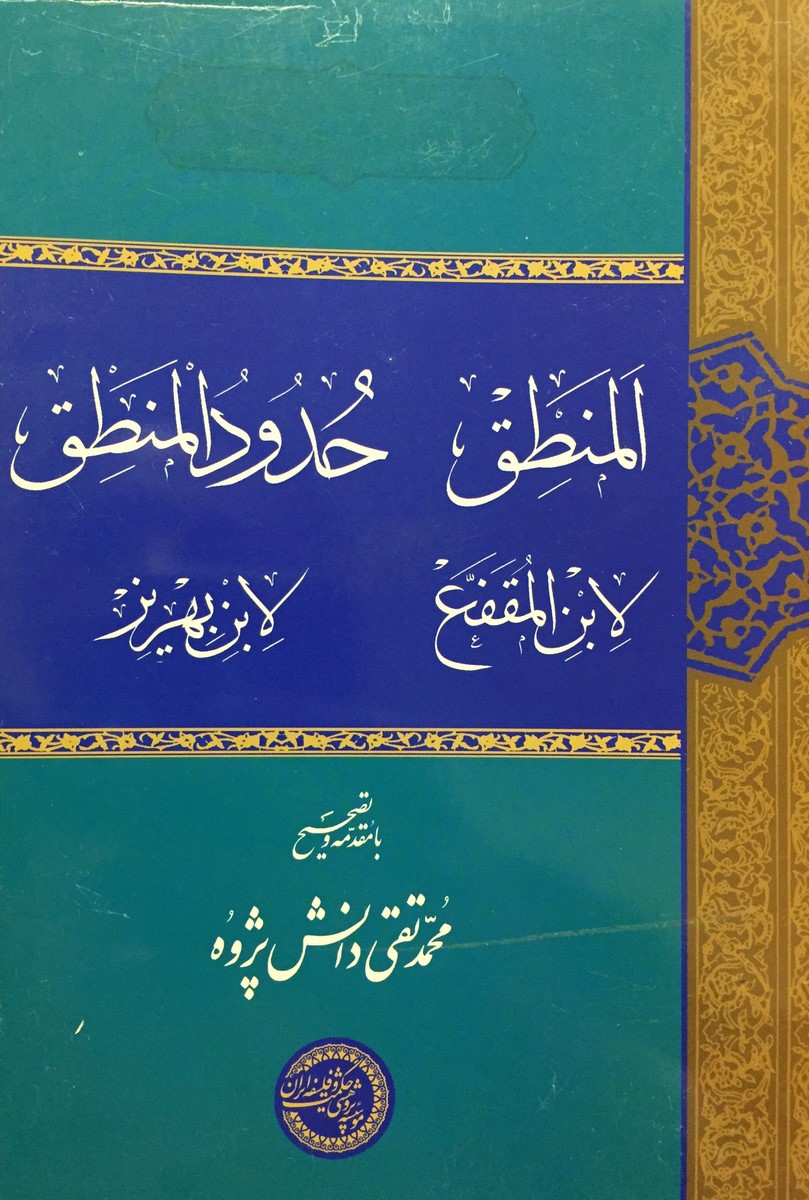 اَلمَنَطِقْ حُدُودُالْمَنَطِقْ
لِابْنِ المُقَفَّعْ لِابْنِ بِهْرِیْز
با مُقدّمه و تصحیح
مُحمّد تقی دانش پژوُه
مؤسسه پژوهشی حکمت و فلسفه ایران